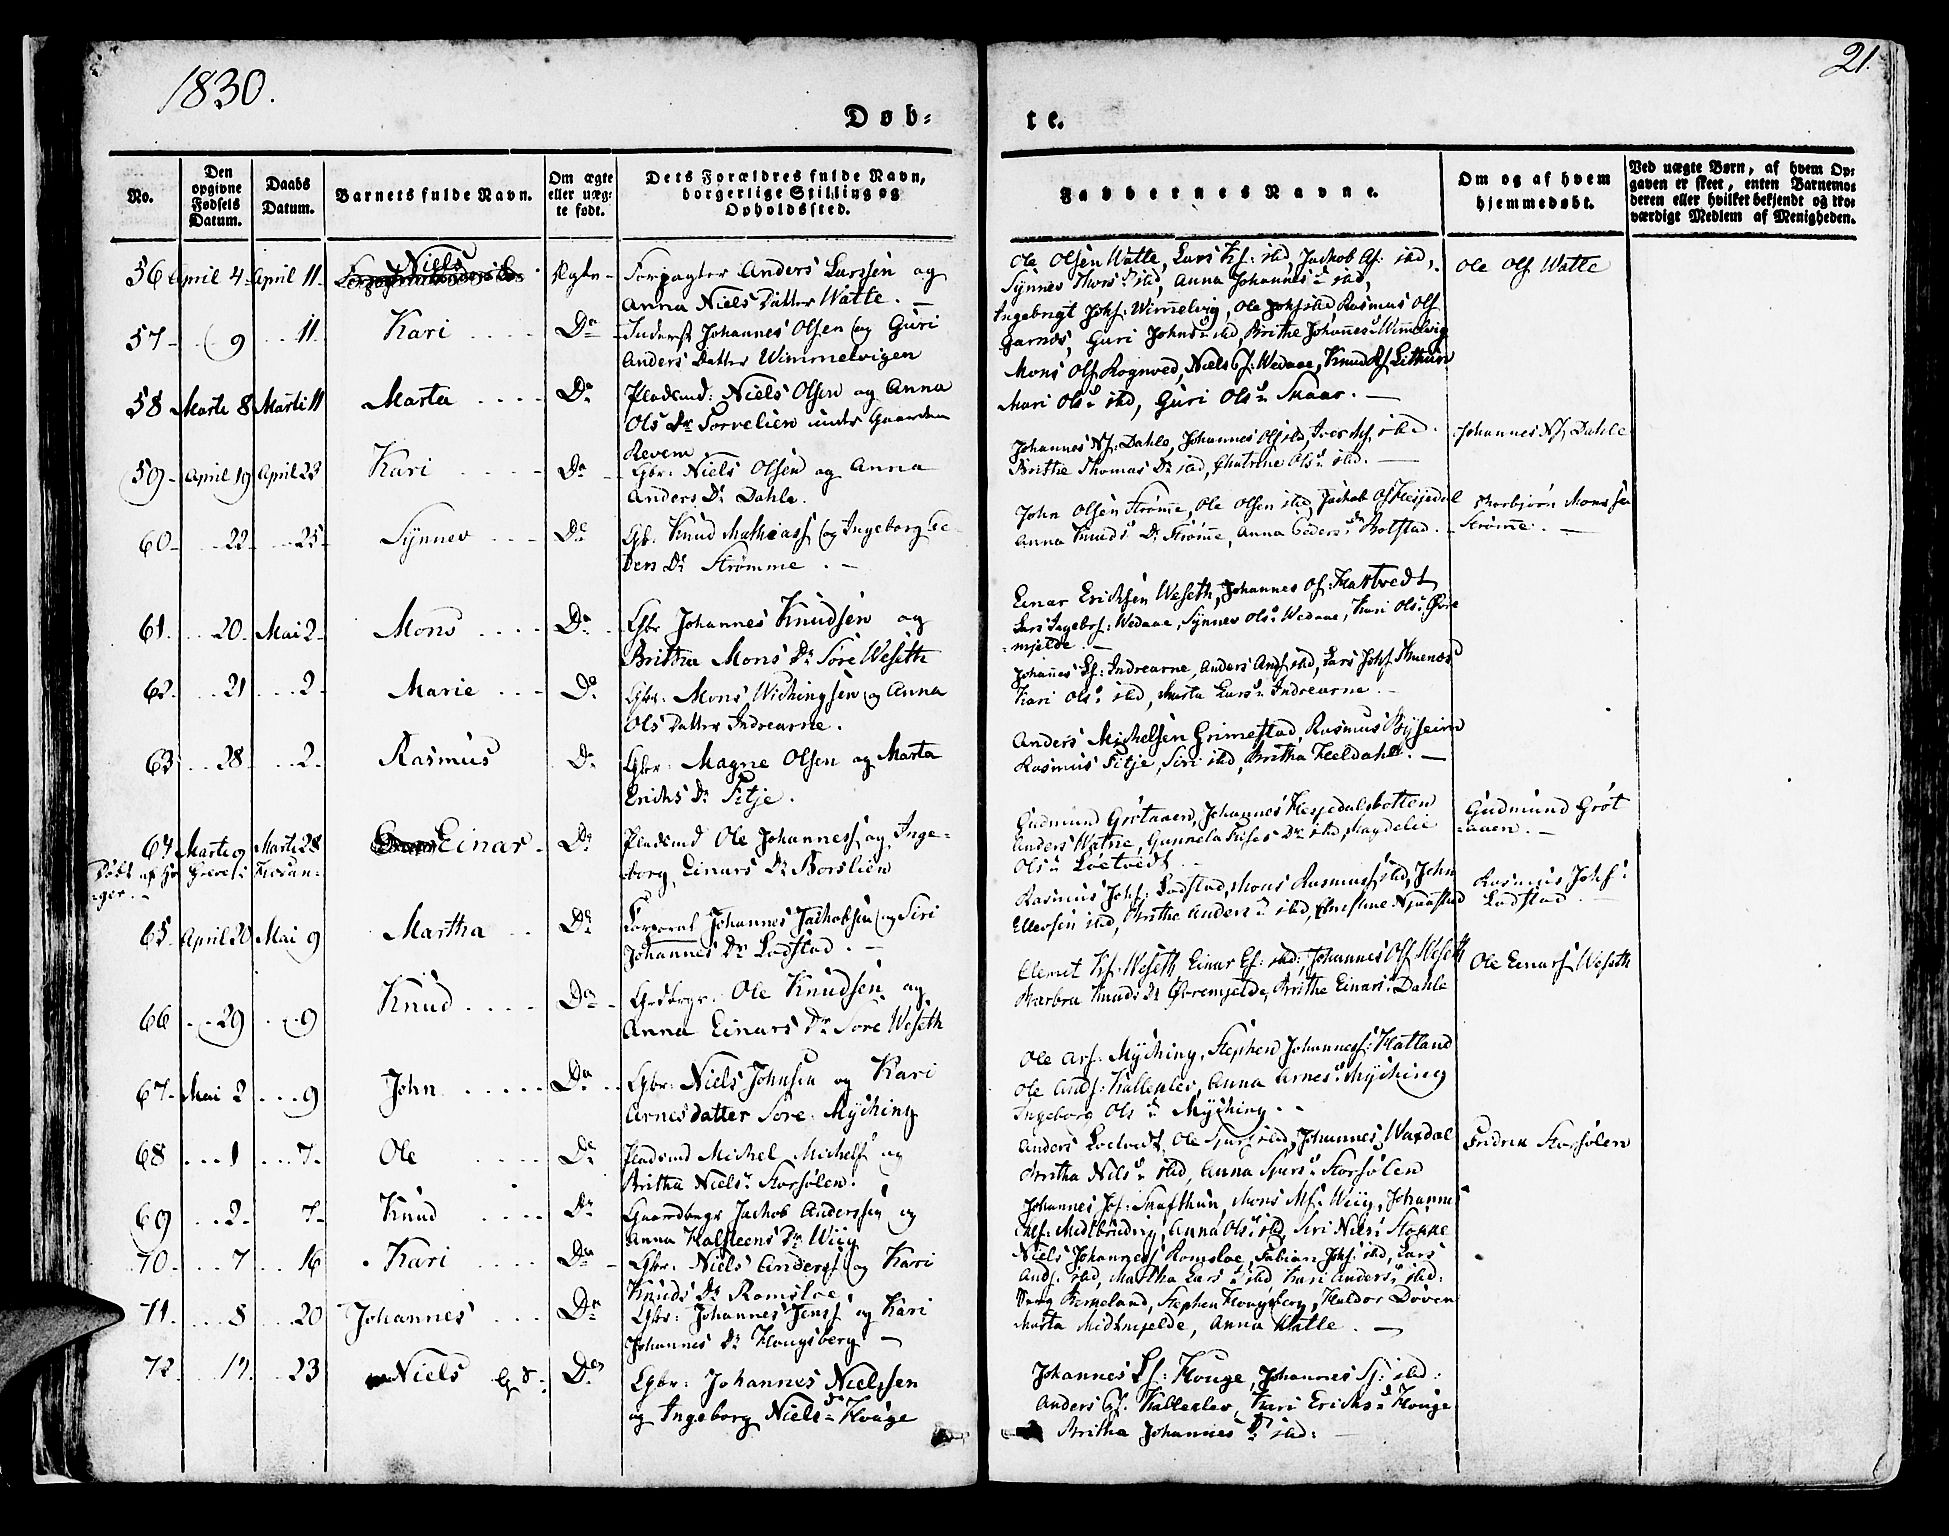 1830.
21.
Døb=
te.
No.
Den opgivne Fødsels Datum.
Daabs Datum.
Barnets fulde Navn.
Om ægte eller uæg=te født.
Dets Forældres fulde Navn, borgerlige Stilling og Opholdssted.
Faddernes Navne.
Om og af hvem hjemmedøbt.
Ved uægte Børn, af hvem Op=gaven er skeet, enten Barnemo=deren eller hvilket bekjendt og tro=værdigt Medlem af Menigheden.
56 April 4. April 11. Niels Ægte Forpagter Anders Larssen og
Anna Niels Datter Watle.
Ole Olsen Watle, Lars Kf: ibd, Jackob Af: ibd,
Synnev Thors D ibd, Anna Johannes D ibd,
Ole Olf Watle
57 9 11. Kari Do Inderst Johannes Olsen og Guri
Anders Datter Wimmelvigen
Ingebrigt Johf: Wimelvig, Ole Johf ibd, Rasmus Olf
Garnæs, Guri Johns D ibd, Brithe Johanes D Wimelvig
58 Marti 8 Marti 11 Marta Do Pladsmd: Niels Olsen og Anna
Ols Dr Torvelien under Gaarden
Revem
Mons Olf Rognved, Niels Wedaae, Knud Lithun
Mari Ols D ibd, Guri Ols D Skaar.
59 April 19 April 23 Kari Do Gbr: Niels Olsen og Anna
Anders Dr Dahle.
Johannes Nf: Dahle, Johannes Olf ibd, Iver ibd.
Brithe Thomas Dr ibd, Chatrine Ols D ibd.
Johannes Nf, Dahle
60 22 25 Synnev Do Gb. Knud Mathiass og Ingeborg Pe-
ders Dr Strømme
John Olsen Strøme, Ole Olsen ibd, Jackob Of Hesjedal
Anna Knuds Dr Strøme, Anna Peders D Botstad
Thorbjørn Monssen
Strøme
61. 20. Mai 2 Mons Do Gbr Johannes Knudsen og
Britha Mons Dr Sore Weseth
Einar Ericksen Weseth, Johannes Of: Hattvedt
Lars Ingebrf: Wedaae, Synnev Ols D Wedaae, Kari Ols D Øvre
mjelde
62. 21 2 Marie Do Gbr: Mons Wichingsen og Anna
Ols Datter Indrearne.
Johanes Lf: Indrearne, Anders Andf ibd, Lars Johf Thuenæs
Kari Ols D ibd, Marta Lars D Indrearne.
63 28 2 Rasmus Do Gbr: Magne Olsen og Marta
Erichs Dr Fitje.
Anders Michelsen Grimestad, Rasmus Byseim
Rasmus Fitje, Siri ibd, Britha Heldahl.
64 Marti 9 Marti 28 Einar Do Pladsmd Ole Johannesf og Inge-
borg Einars Dr Borslien
Døbt af Hr Greve i Frosan-
ger.
Gudmund Grøtaaen, Johannes Hespedalsbotten
Anders Watne, Gunnela ibd, Magdelie
Ols D Løetvedt
Gudmund Grøt
aaen.
65 April 20 Mai 9 Martha Do Korporal Johannes Jackobsen og Siri
Johannes Dr Ladstad.
Rasmus Johf: Ladstad, Mons Rasmusf ibd, John
Ellevsen ibd, Brithe Anders D ibd,
Rasmus Johf:
Ladstad
66 29 9 Knud Do Gbr. Ole Knudsen og
Anna Einars Dr Sore Weseth
Clemet Kf: Weseth, Einar Ef: ibd:, Johannes Olf Weseth
Barbra Knuds Dr Øvremjelde, Brithe Einars D Dahle
Ole Einarf Weseth
67 Mai 2 9 John Do Gbr: Niels Johnsen og Kari
Arnesdatter Sore Myching
Ole Arf: Myching, Stephen Johannesf: Hatland
Ole Andf: Kalleklev, Anna Arnes D Myching
Ingeborg Ols D Myching
68 1 7 Ole Do Pladsmd Michel Michelf og
Britha Niels D Storsølen.
Anders Løetvedt, Ole ibd, Johannes Waxdal
Britha Nils D ibd, Anna Storsølen
Fridrik Storsølen
69 2 7 Knud Do Gaardbrgr Jackob Anderssen og
Anna Halsteens Dr Wiig
Johannes Jof: Skafthun, Mons Mf: Wiig, Johannes
Midtbrudvig, Anna Ols D ibd, Siri Niels D Stokke
70 7 16 Kari Do Gbr: Niels Andersf og Kari
Knuds Dr Romsloe
Niels Johannesf Romsloe, Fabian Johf: ibd, Lars
Andf. ibd, Martha Lars D ibd Kari Anders D ibd:
71. 8 20 Johannes Do Gbr: Johannes Jensf og Kari
Johannes Dr Hougsberg
Berge Birkeland, Stephen Hougsberg, Haldor Døven
Marta Midtmjelde, Anna Watle
72. 17. 23 Niels Do Gbr: Johannes Nielssen
og Ingeborg Niels D Houge
Johannes Lf: Houge, Johannes ibd:
Anders Kalleklev, Kari Erichs D Houge
Britha Johannes D ibd: